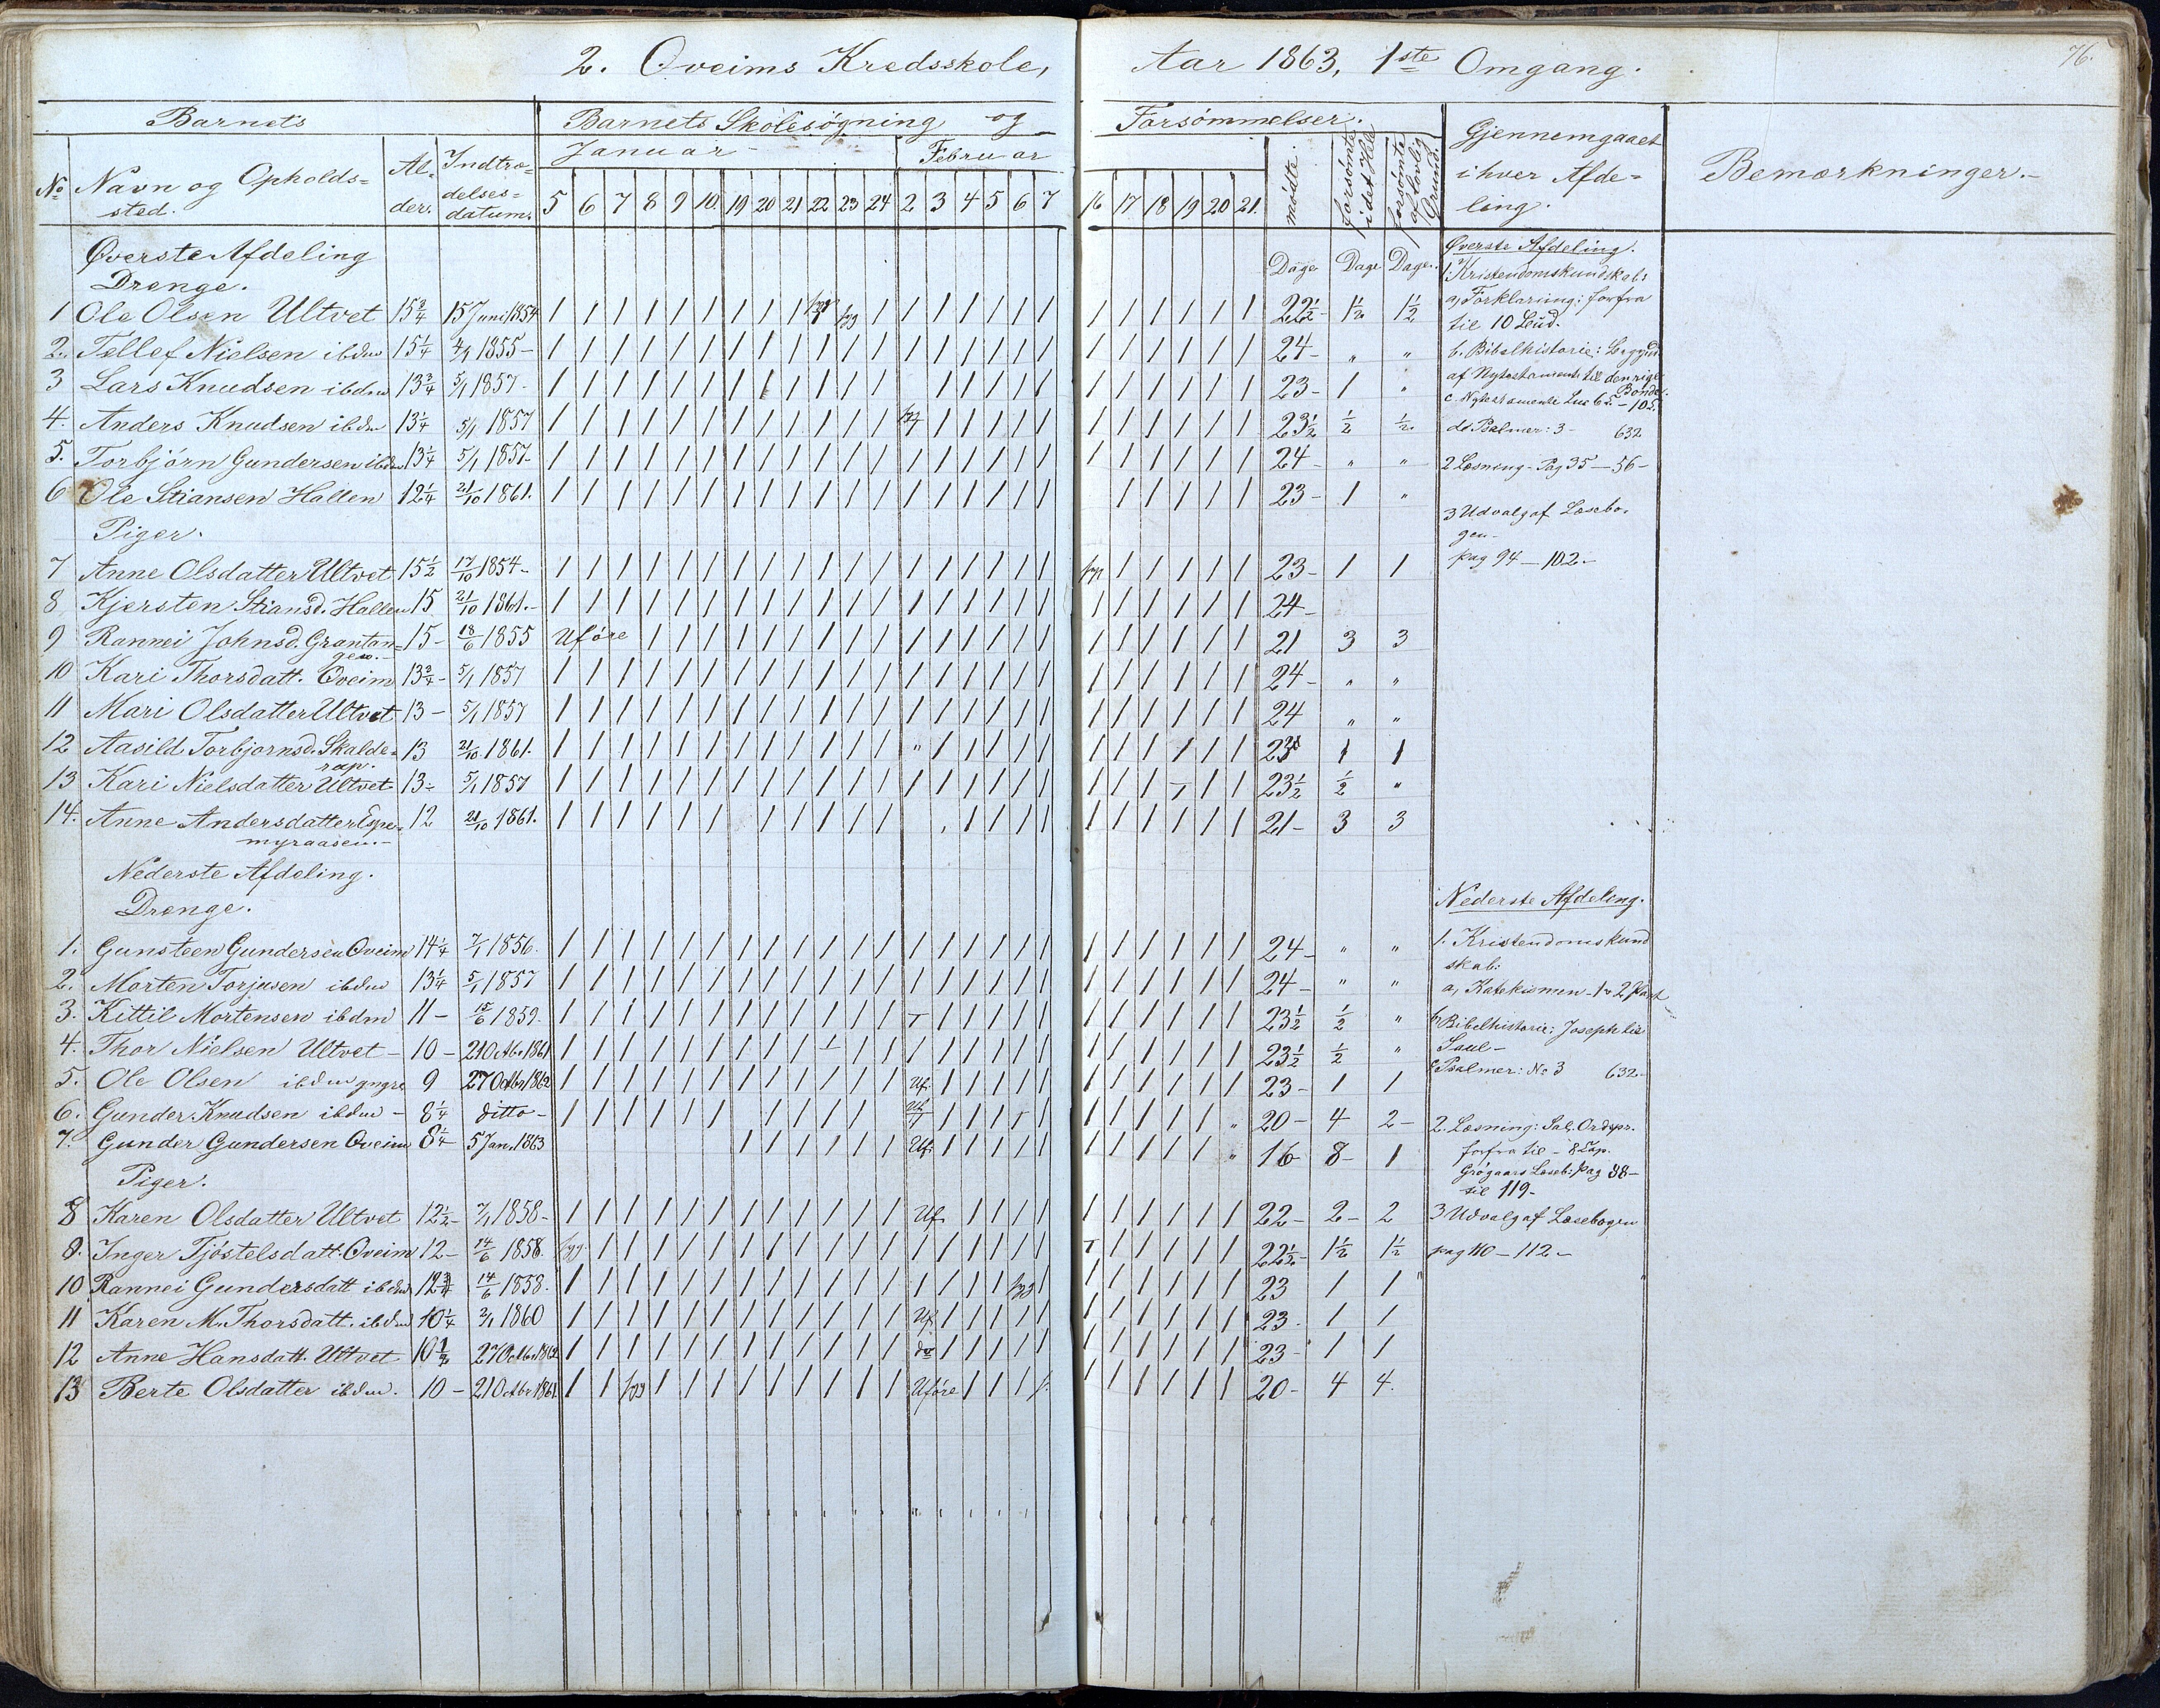 2. Oveims Kredsskole, Aar 1863, 1ste Omgang.
76.
Barnets | Barnets Skolesøgning og Forsømmelser.
Januar | Februar
No | Navn og Opholds=sted. | Al=der. | Indtræ=delses=datum. | 5 | 6 | 7 | 8 | 9 | 10 | 19 | 20 | 21 | 22 | 23 | 24 | 2 | 3 | 4 | 5 | 6 | 7 | 16 | 17 | 18 | 19 | 20 | 21. | mødte. | forsømte i det Hele | forsømte af lovlig Grund. | Gjennemgaaet i hver Afde=ling. | Bemærkninger.-
Øverste Afdeling
Drenge.
Dage | Dage | Dage.
1 Ole Olsen Ultvet 15 3/4 15 Juni 1854 22 1/2 - 1 1/2 1 1/2
2. Tellef Nielsen ibdm 15 1/4 1855- 24- " "
3 Lars Knudsen ibdm 13 3/4 5/1 1857- 23- 1 "
4. Anders Knudsen ibdm 13 1/4 5/1 1857 23 1/2 1/2 1/2
5. Torbjörn Gundersen ibdm 13 1/4 5/1 1857- 24- " "
6 Ole Stiansen Hallen 12 1/4 21/10 1861. 23- 1 "
Piger.
7 Anne Olsdatter Ultvet 15 1/2 17/10 1854- 23- 1 1
8 Kjersten Stiansd. Hallen 15 21/10 1861.- 24-
9 Rannei Johnsd. Grantan=gen.- 15- 18/6 1855 Uføre 21 3 3
10 Kari Thorsdatt. Oveim 13 3/4- 5/1 1857 24- " "
11 Mari Olsdatter Ultvet 13- 5/1 1857 24 " "
12 Aasild Torbjørnsd. Skalde=rap. 13 21/10 1861. 23 1 1
13 Kari Nielsdatter Ultvet 13- 5/1 1857 23 1/2 1/2 "
14. Anne Andersdatter Espe=myraasen.- 12 21/10 1861. 21- 3 3
Nederste Afdeling.
Drenge.
1. Gunsteen Gundersen Oveim 14 1/4 7/1 1856. 24- " "
2. Morten Torjusen ibdm 13 1/4 5/1 1857 24- " "
3. Kittil Mortensen ibdm 11- 15/6 1859. 23 1/2 1/2 "
4. Thor Nielsen Ultvet- 10- 21 Octbr 1861 23 1/2 1/2 "
5. Ole Olsen ibdm yngre 9 27 Octbr 1862 Uf. 23- 1 1
6. Gunder Knudsen ibdm- 8 1/4 ditto- Uf. 20- 4 2-
7. Gunder Gundersen Oveim 8 1/4 5 Jan. 1863 Uf. 16 8- 1
Piger.
8 Karen Olsdatter Ultvet 12 1/2- 7/1 1858- Uf. 22- 2- 2
9. Inger Tjöstelsdatt. Oveim 12- 14/6 1858. syg 22 1/2- 1 1/2 1 1/2
10 Rannei Gundersdatt ibdm 12 14/6 1858. syg 23 1 1
11 Karen M. Thorsdatt. ibdm 10 1/4 1860 Uf. 23. 1 1
12 Anne Hansdatt. Ultvet 10 27 Octbr. 1862 do 23- 1 1
13 Berte Olsdatter ibdm. 10- 21 Octbr 1861. syg Uføre 20- 4 4.
Øverste Afdeling.
1. Kristendomskundskab:
a, Forklaring: forfra
til 10 Bud.
b. Bibelhistorie: Begynd.
af Nytestamente til den rige
Bonde.
c. Nytestamente Luc 6 - 10
d. Psalmer: 3- 632
2 Læsning- Pag 35-56-
3 Udvalg af Læsebo-
gen-
pag 94-102.-
Nederste Afdeling.
1. Kristendomskund
skab:
a, Katekismen- 1 2 Part
b, Bibelhistorie: Joseph til
Saul-
c Psalmer: No 3 632-
2. Læsning: Sal. Ordspr.
forfra til- 8 Cap.
Grøgaars Læseb: Pag 88-
til 119-
3 Udvalg af Læsebogen
pag 110-112-